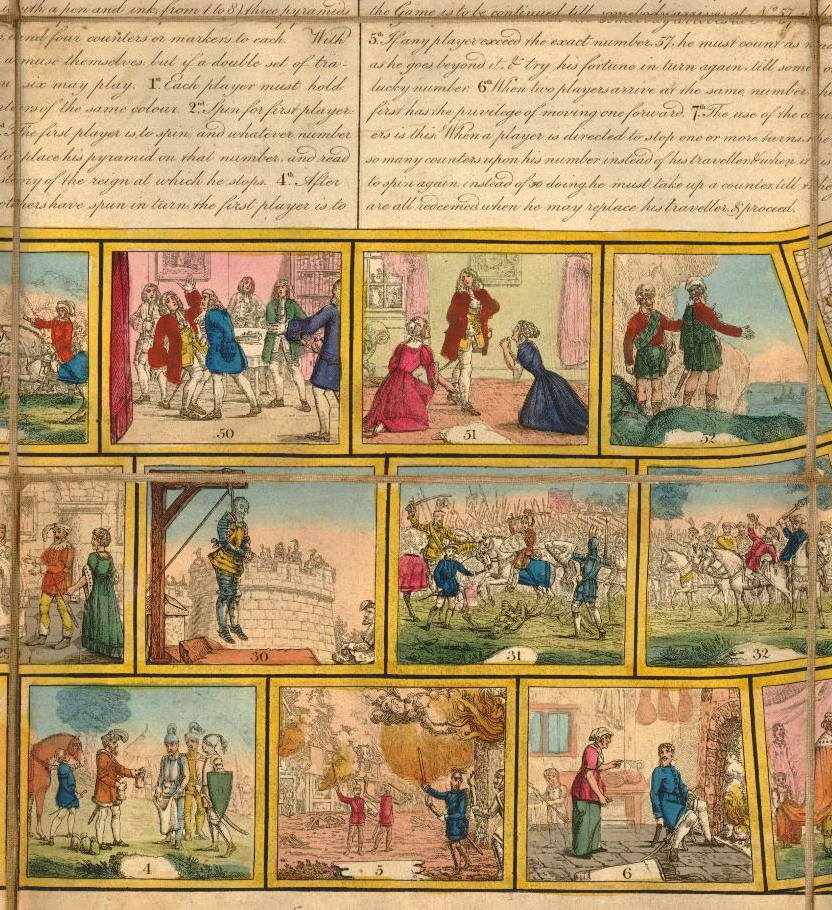 with a pen and ink, from 1 to 8) three pyramids
and four counters or markers to each. With
amuse themselves but if a double set of tra-
six may play. 1st. Each player must hold
of the same colour. 2nd. Spin for first player
The first player is to spin, and whatever number
place his pyramid on that number, and read
of the reign at which he stops. 4th. After
others have spun in turn the first player is to
the Game is to be continued till somebody arrives at No. 57.
5th. If any player exceed the exact number, 57, he must count as
as he goes beyond it, & try his fortune in turn again, till some
lucky number. 6th. When two players arrive at the same number,
first has the privilege of moving one forward. 7th. The use of the
ers is this. When a player is directed to stop one or more turns,
so many counters upon his number instead of his traveller & when it is
to spin again, instead of so doing, he must take up a counter, till
are all redeemed when he may replace his traveller, & proceed.
50
51
52
29
30
31
32
4
5
6